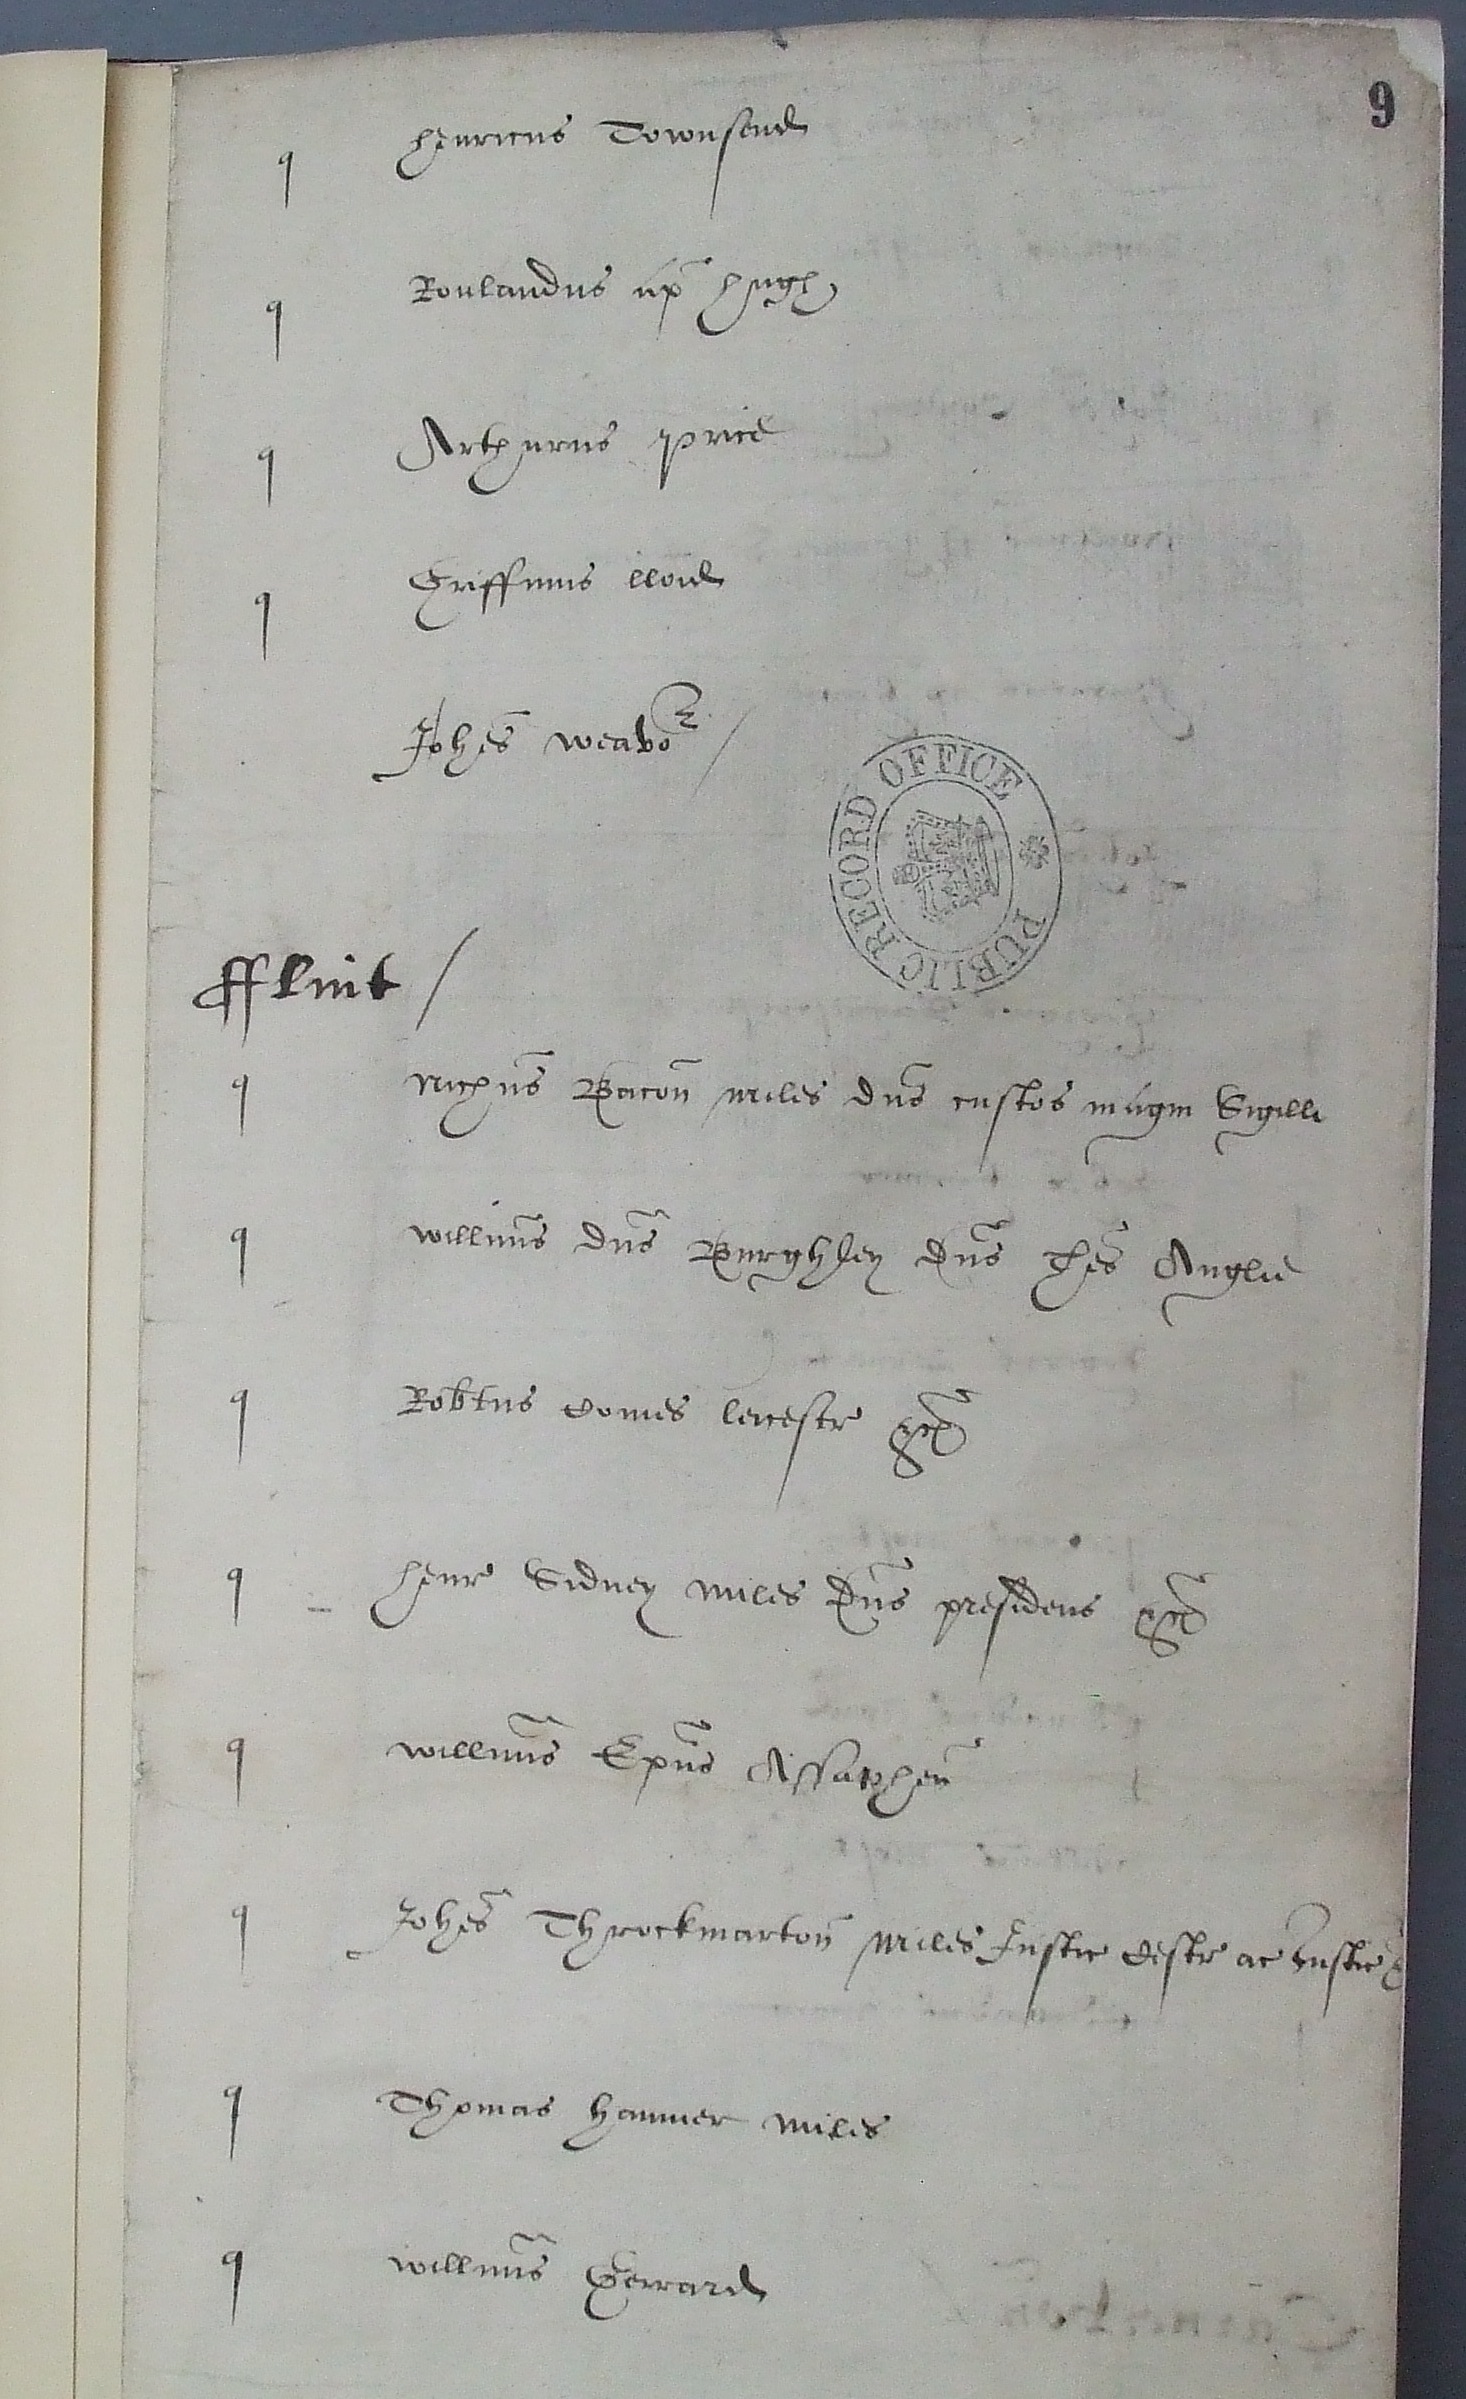 9
q Henricus Townsend
q Roulandus ap Hugh
q Arthurus Price
q Griffinus lloid
Johes weavor /
PUBLIC RECORD OFFICE
fflint /
q Nichus Bacon miles dns custos magni Sigilli
q willmus dns Burghley dns thes Anglie
q Robtus Comes leicestr &c
q Henr Sidney miles dns presidens &c
q willmus Epus Assaphen
q Johes Throckmarton miles Justic Cestr ac Custic
q Thomas Hanmer miles
q willmus Gerrard